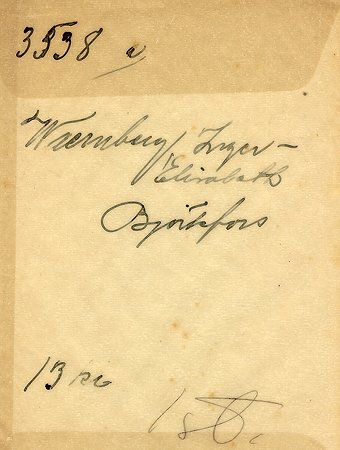 3538 a
Wernberg, Inger-
Elisabeth
Björkfors
13
1 st.